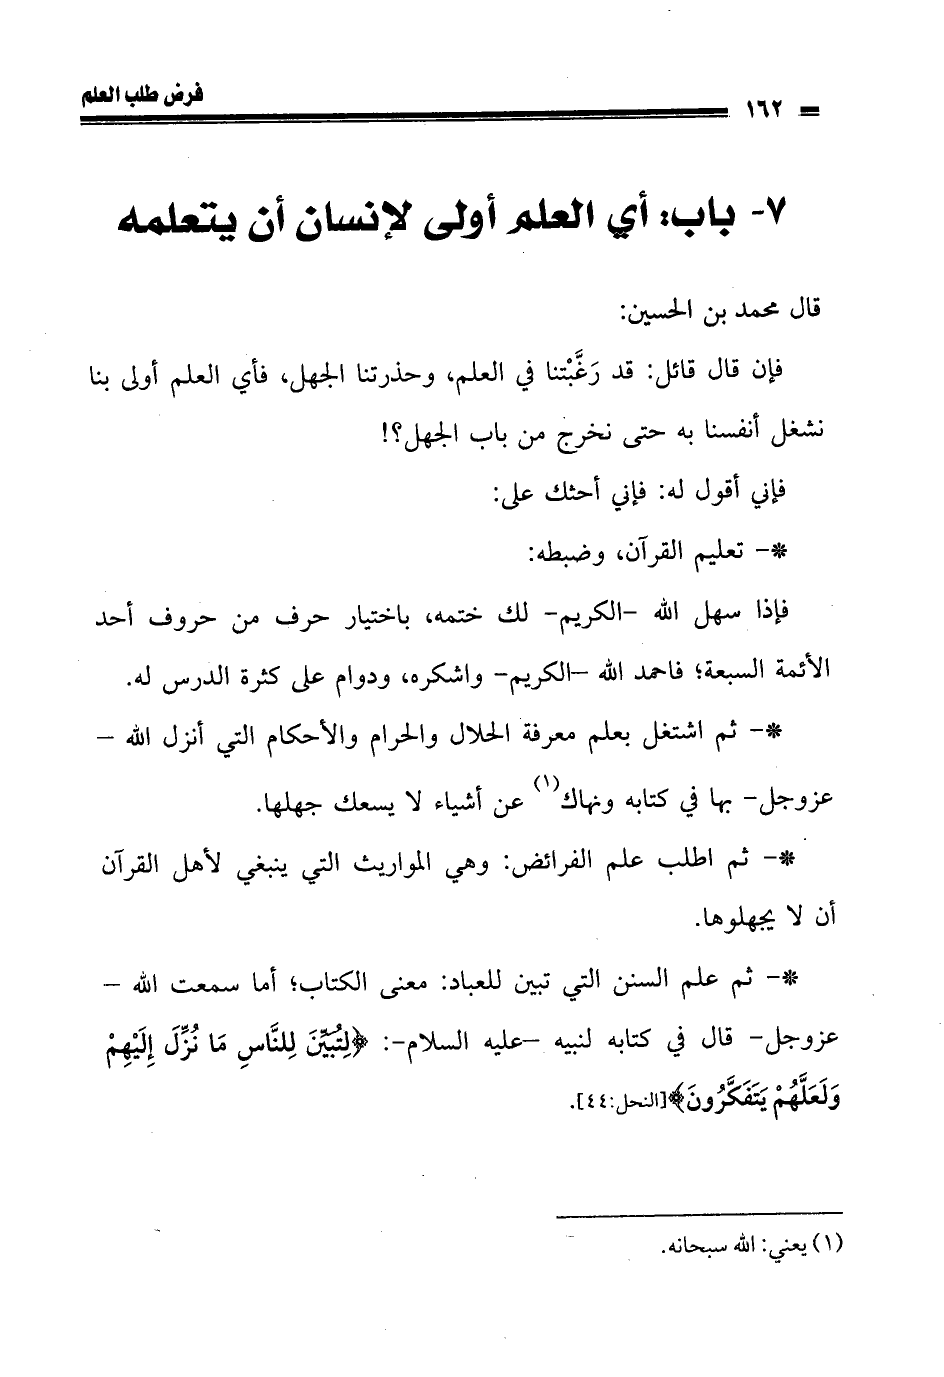 فرض طلب العلم
١٦٢
٧- باب: أي العلم أولى لإنسان أن يتعلمه
قال محمد بن الحسين:
فإن قال قائل: قد رَغَّبْتنا في العلم، وحذرتنا الجهل، فأي العلم أولى بنا
نشغل أنفسنا به حتى نخرج من باب الجهل؟!
فإني أقول له: فإني أحثك على:
*- تعليم القرآن، وضبطه:
فإذا سهل الله -الكريم- لك ختمه، باختيار حرف من حروف أحد
الأئمة السبعة؛ فاحمد الله -الكريم- واشكره، ودوام على كثرة الدرس له.
*- ثم اشتغل بعلم معرفة الحلال والحرام والأحكام التي أنزل الله -
عزوجل- بها في كتابه ونهاك(١) عن أشياء لا يسعك جهلها.
*- ثم اطلب علم الفرائض: وهي المواريث التي ينبغي لأهل القرآن
أن لا يجهلوها.
*- ثم علم السنن التي تبين للعباد: معنى الكتاب؛ أما سمعت الله -
عزوجل- قال في كتابه لنبيه -عليه السلام-: ﴿لِتُبَيِّنَ لِلنَّاسِ مَا نُزِّلَ إِلَيْهِمْ
وَلَعَلَّهُمْ يَتَفَكَّرُونَ﴾[النحل:٤٤].
(١) يعني: الله سبحانه.